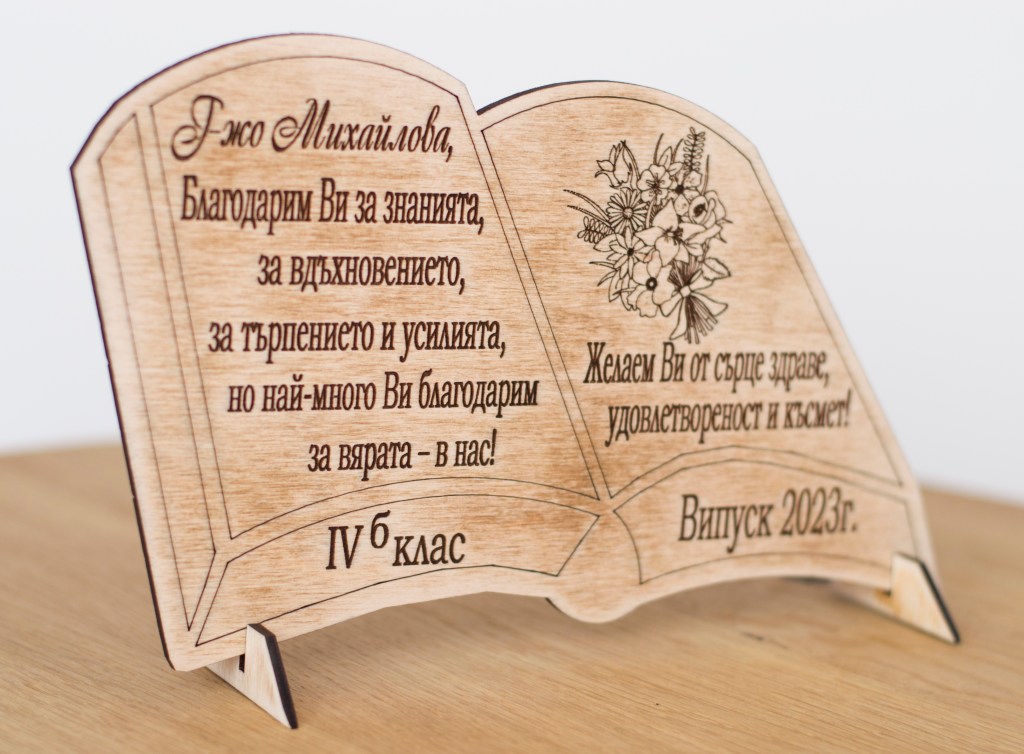 Г-жо Михайлова,
Благодарим Ви за знанията,
за вдъхновението,
за търпението и усилията,
но най-много Ви благодарим
за вярата – в нас!
IV б клас
Желаем Ви от сърце здраве,
удовлетвореност и късмет!
Випуск 2023г.